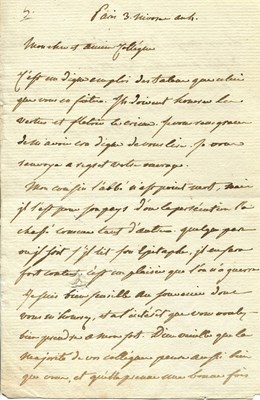 Paris 3 nivose an 4.
Mon cher et ancien Collègue
C'est un digne emploi des talens que celui
que vous en faites. Ils doivent honorer la
vertu et flétrir le crime. Je vous rens grace
de m'avoir cru digne de vous lire. Je vous
renvoye à regret votre ouvrage.
Mon cousin l'abbé n'est point mort, mais
il l'est pour son pays d'où la persécution l'a
chassé comme tant d'autres. quelque part
où il soit s'il lit son Epitaphe, il en sera
fort content; c'est un plaisir que l'on n'a guères
Je suis bien sensible au souvenir dont
vous m'honorez, et à l'intérêt que vous voulez
bien prendre à mon sort. Dieu veuille que la
majorité de vos collègues pense aussi bien
que vous, et qu'elle prenne une bonne fois